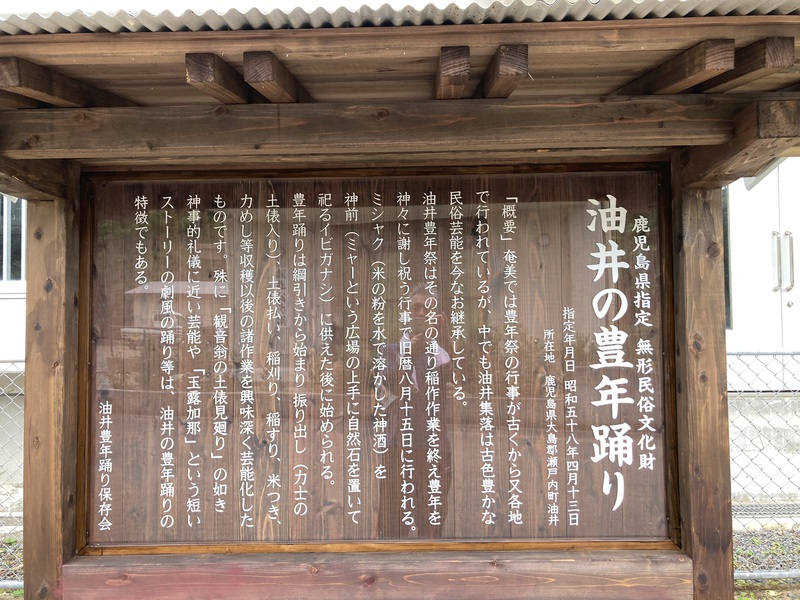 鹿児島県指定 無形民俗文化財
油井の豊年踊り
指定年月日 昭和五十八年四月十三日
所在地 鹿児島県大島郡瀬戸内町油井
「概要」奄美では豊年祭の行事が古くから又各地
で行われているが、中でも油井集落は古色豊かな
民俗芸能を今なお継承している。
油井豊年祭はその名の通り稲作作業を終え豊年を
神々に謝し祝う行事で旧暦八月十五日に行われる。
ミシャク（米の粉を水で溶かした神酒）を
神前（ミャーという広場の上手に自然石を置いて
祀るイビガナシ）に供えた後に始められる。
豊年踊りは綱引きから始まり 振り出し（力士の
土俵入り）、土俵払い、稲刈り、稲すり、米つき、
力めし等収穫以後の諸作業を興味深く芸能化した
ものです。殊に「観音翁の土俵見廻り」の如き
神事的礼儀に近い芸能や「玉露加那」という短い
ストーリーの劇風の踊り等は、油井の豊年踊りの
特徴でもある。
油井豊年踊り保存会